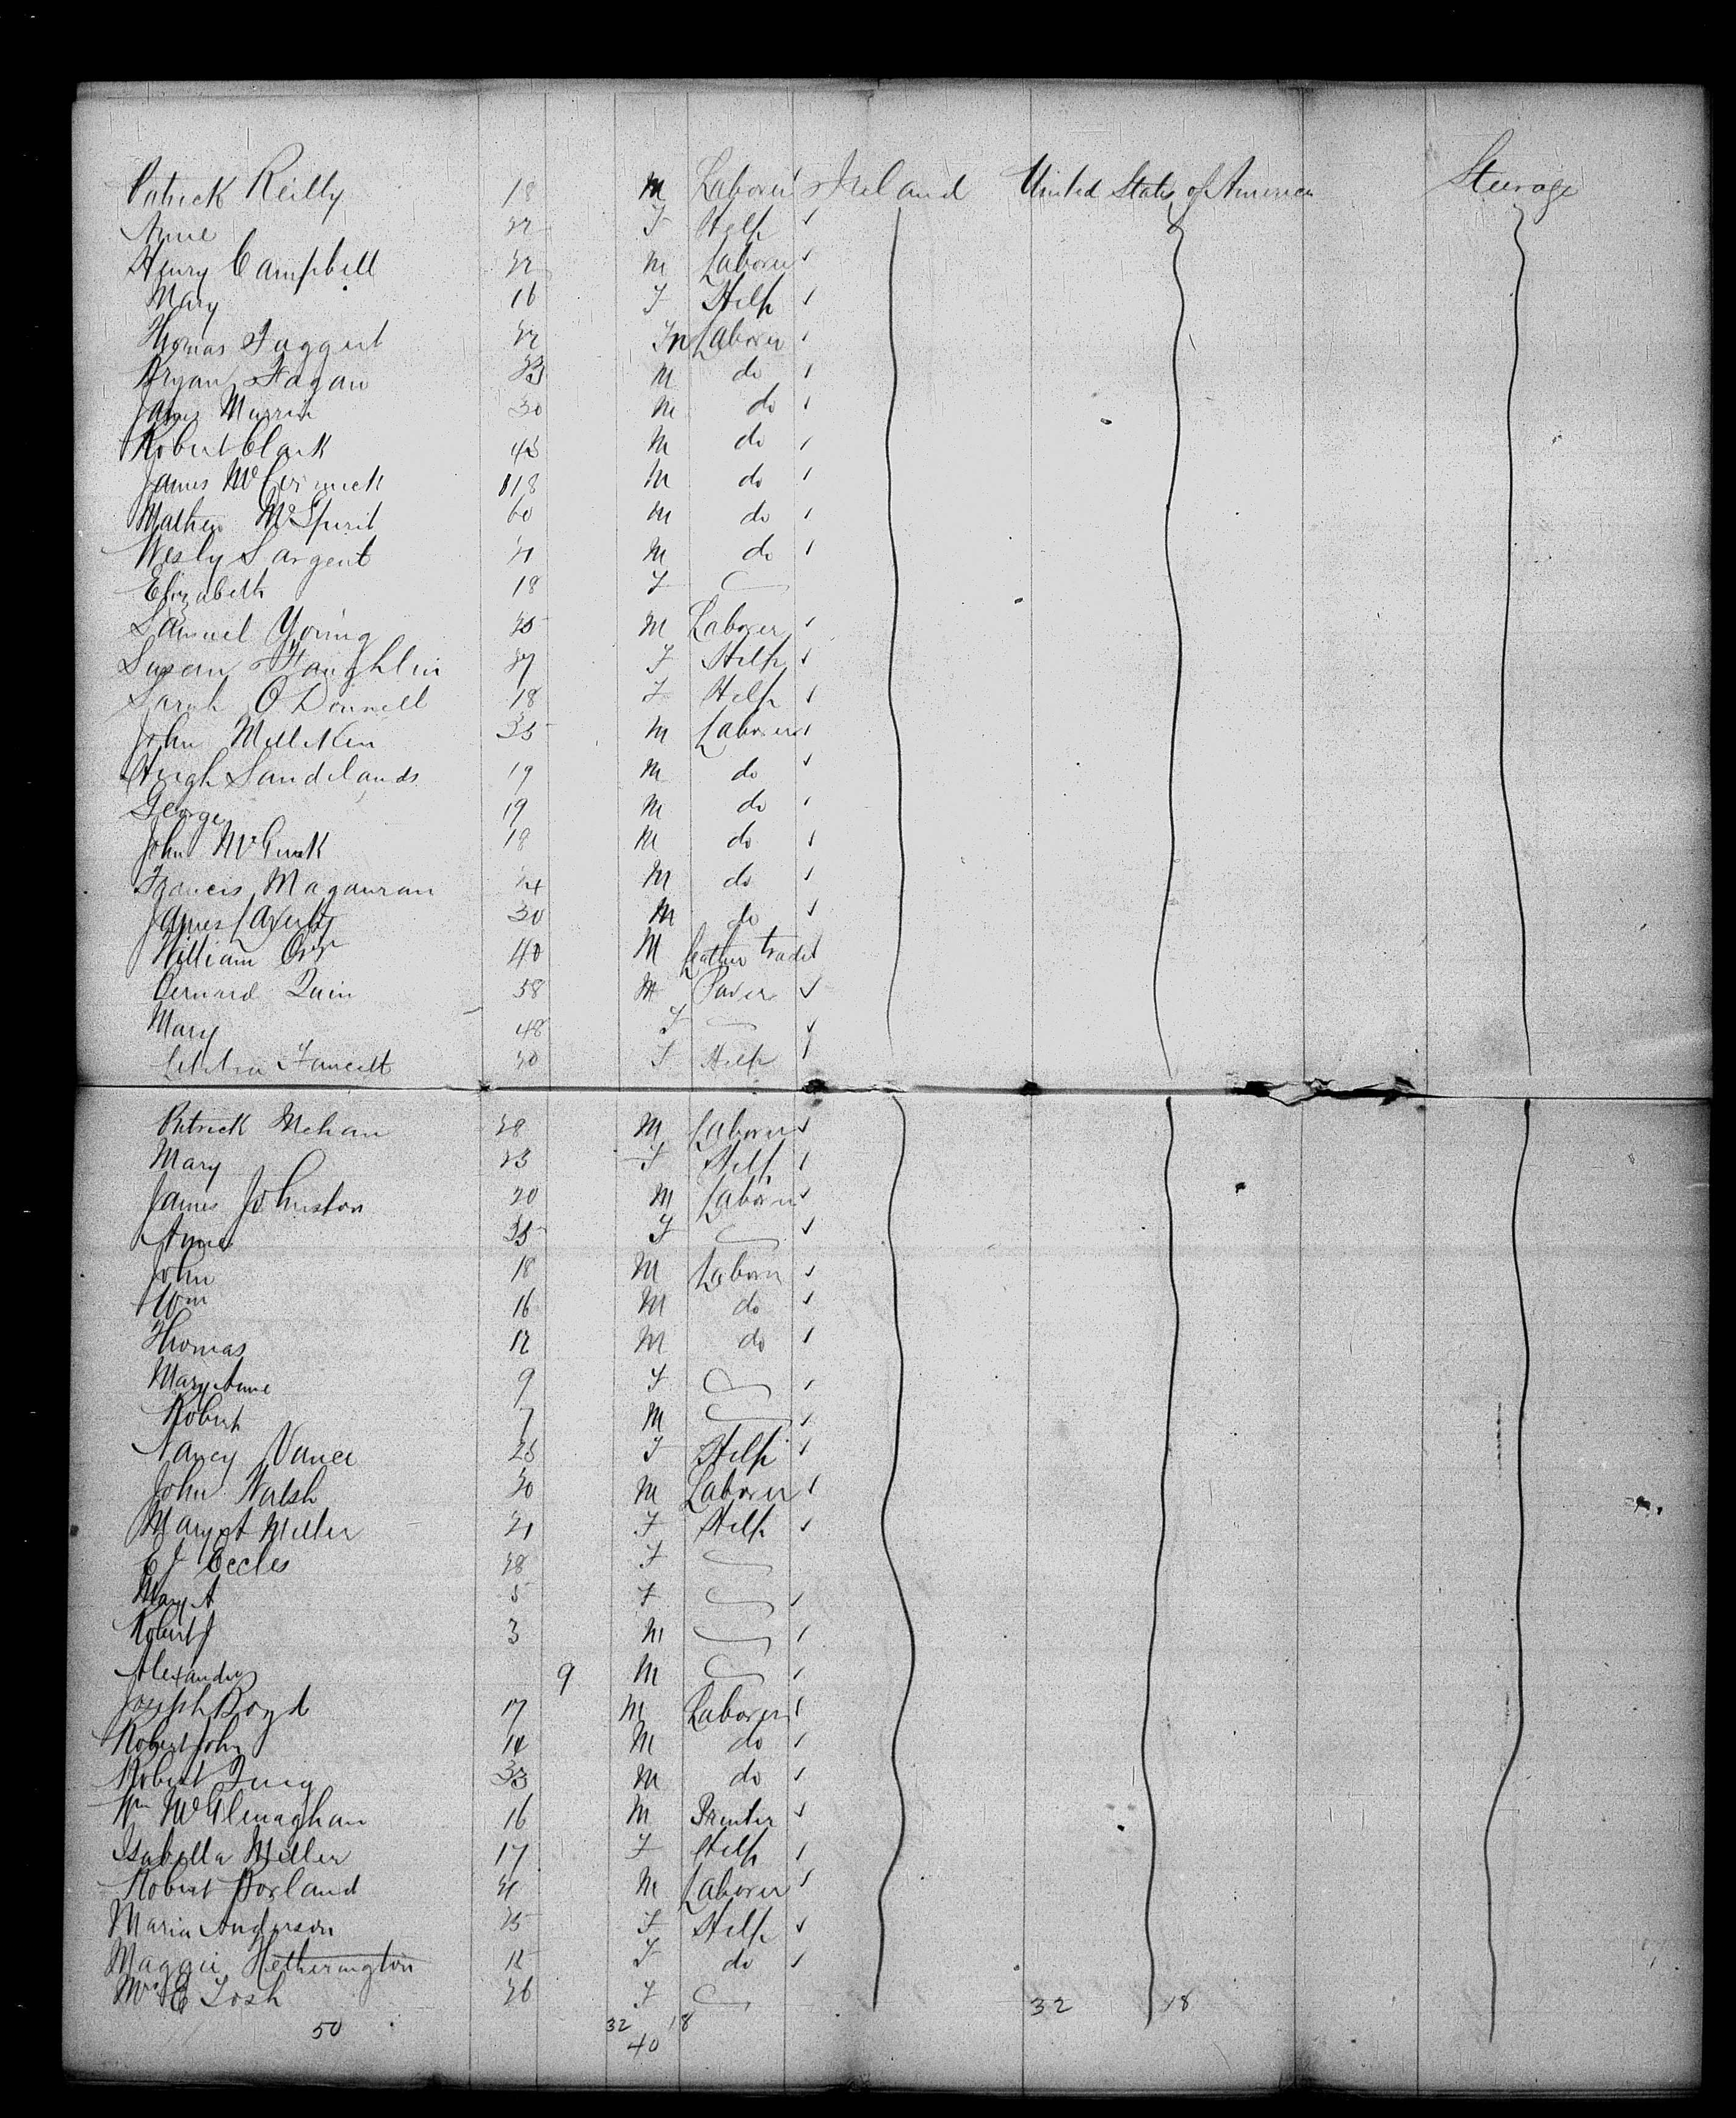 Patrick Reilly 18 M Laborer Ireland United States of America Steerage
Anne 22 F Help
Henry Campbell 22 M Laborer
Mary 16 F Help
Thomas Taggert 22 M Laborer
Bryan Fagan M do
James Murrin 30 M do
Robert Clark 45 M do
James McCormick 18 M do
Mathew McSpirit 60 M do
Wesly Sargent 21 M do
Elizabeth 18 F
Samuel Young 25 M Laborer
Susan Haughlin 27 F Help
Sarah O'Donnell 18 F Help
John Milliken 35 M Laborer
Hugh Sandilands 19 M do
George 19 M do
John McGurk 18 M do
Francis Magauran 24 M do
James 30 M do
William Orr 40 M leather trader
Bernard Quin 58 M Paver
Mary 48 F
Letitia Fawcett 20 F Help
Patrick Mehan 28 M Laborer
Mary 23 F Help
James Johnston 20 M Laborer
Anne 35 F
John 18 M Laborer
Wm 16 M do
Thomas 12 M do
Mary Anne 9 F
Robert 7 M
Nancy Vance 25 F Help
John Walsh 20 M Laborer
Mary A Miller 21 F Help
E J Eccles 28 F
Mary A 5 F
Robert J 3 M
Alexander 9 M
Joseph Boyd 17 M Laborer
Robert John M do
Robert 33 M do
Wm McGlenaghan 16 M Printer
Isabella Miller 17 F Help
Robert Borland 21 M Laborer
Maria Anderson 25 F Help
Maggie Hetherington 12 F do
Mrs E Tosh 26 F
32 18
50 32 18
40